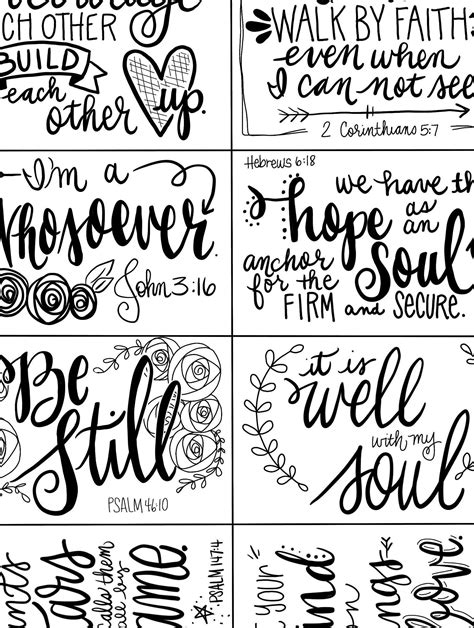 CH OTHER
BUILD
each
other up.
WALK BY FAITH
even when
I can not see
2 Corinthians 5:7
I'm a
Whosoever.
John 3:16
Hebrews 6:18
we have th
hope as an
anchor
for the soul
FIRM and SECURE.
Be
Still
PSALM 46:10
it is
well
with my
soul
nts
ars
calls them
all by
ame.
PSALM 147:4
YOUR
ind
ngs
ove.